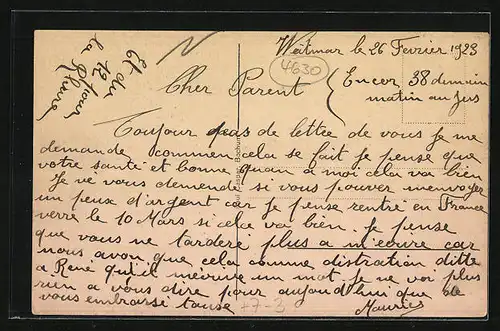 Weitmar le 26 Fevrier 1923
4630
Et du 12 pour la
Cher Parent
Encor 38 demain
matin au jus
Toujour pas de lettre de vous Je me
demande commen cela se fait je pense que
votre santé et bonne quan a moi cela va bien
Je vé vous demende si vous pouver m'envoyer
un peux d'argent car je pense rentré en France
verre le 10 Mars si cela va bien. Je pense
que vous ne tarderé plus a m'ecrire car
nous avon que cela comme distration ditte
a René qu'il m'ecrive un mot Je ne voi plus
rien a vous dire pour aujourd'hui que de
vous embrassé tause
Maurice
Bochum